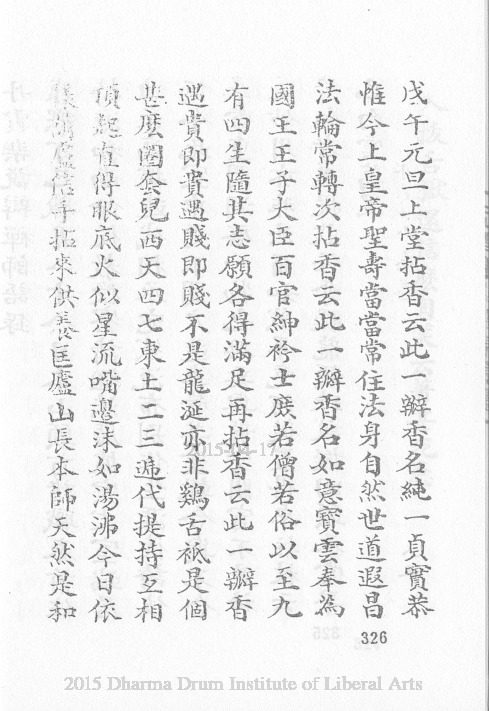 戊午元旦上堂拈香云此一瓣香名純一貞實恭
惟今上皇帝聖壽當當常住法身自然世道遐昌
法輪常轉次拈香云此一瓣香名如意寶雲奉為
國王王子大臣百官紳衿士庶若僧若俗以至九
有四生隨其志願各得滿足再拈香云此一瓣香
遇貴即貴遇賤即賤不是龍涎亦非鷄舌祇是個
甚麼圈套兒西天四七東土二三遞代提持互相
頂起直得眼底火似星流嘴邊沫如湯沸今日依
樣葫蘆信手拈來供養匡廬山長本師天然是和
326
2015-04-17
2015 Dharma Drum Institute of Liberal Arts